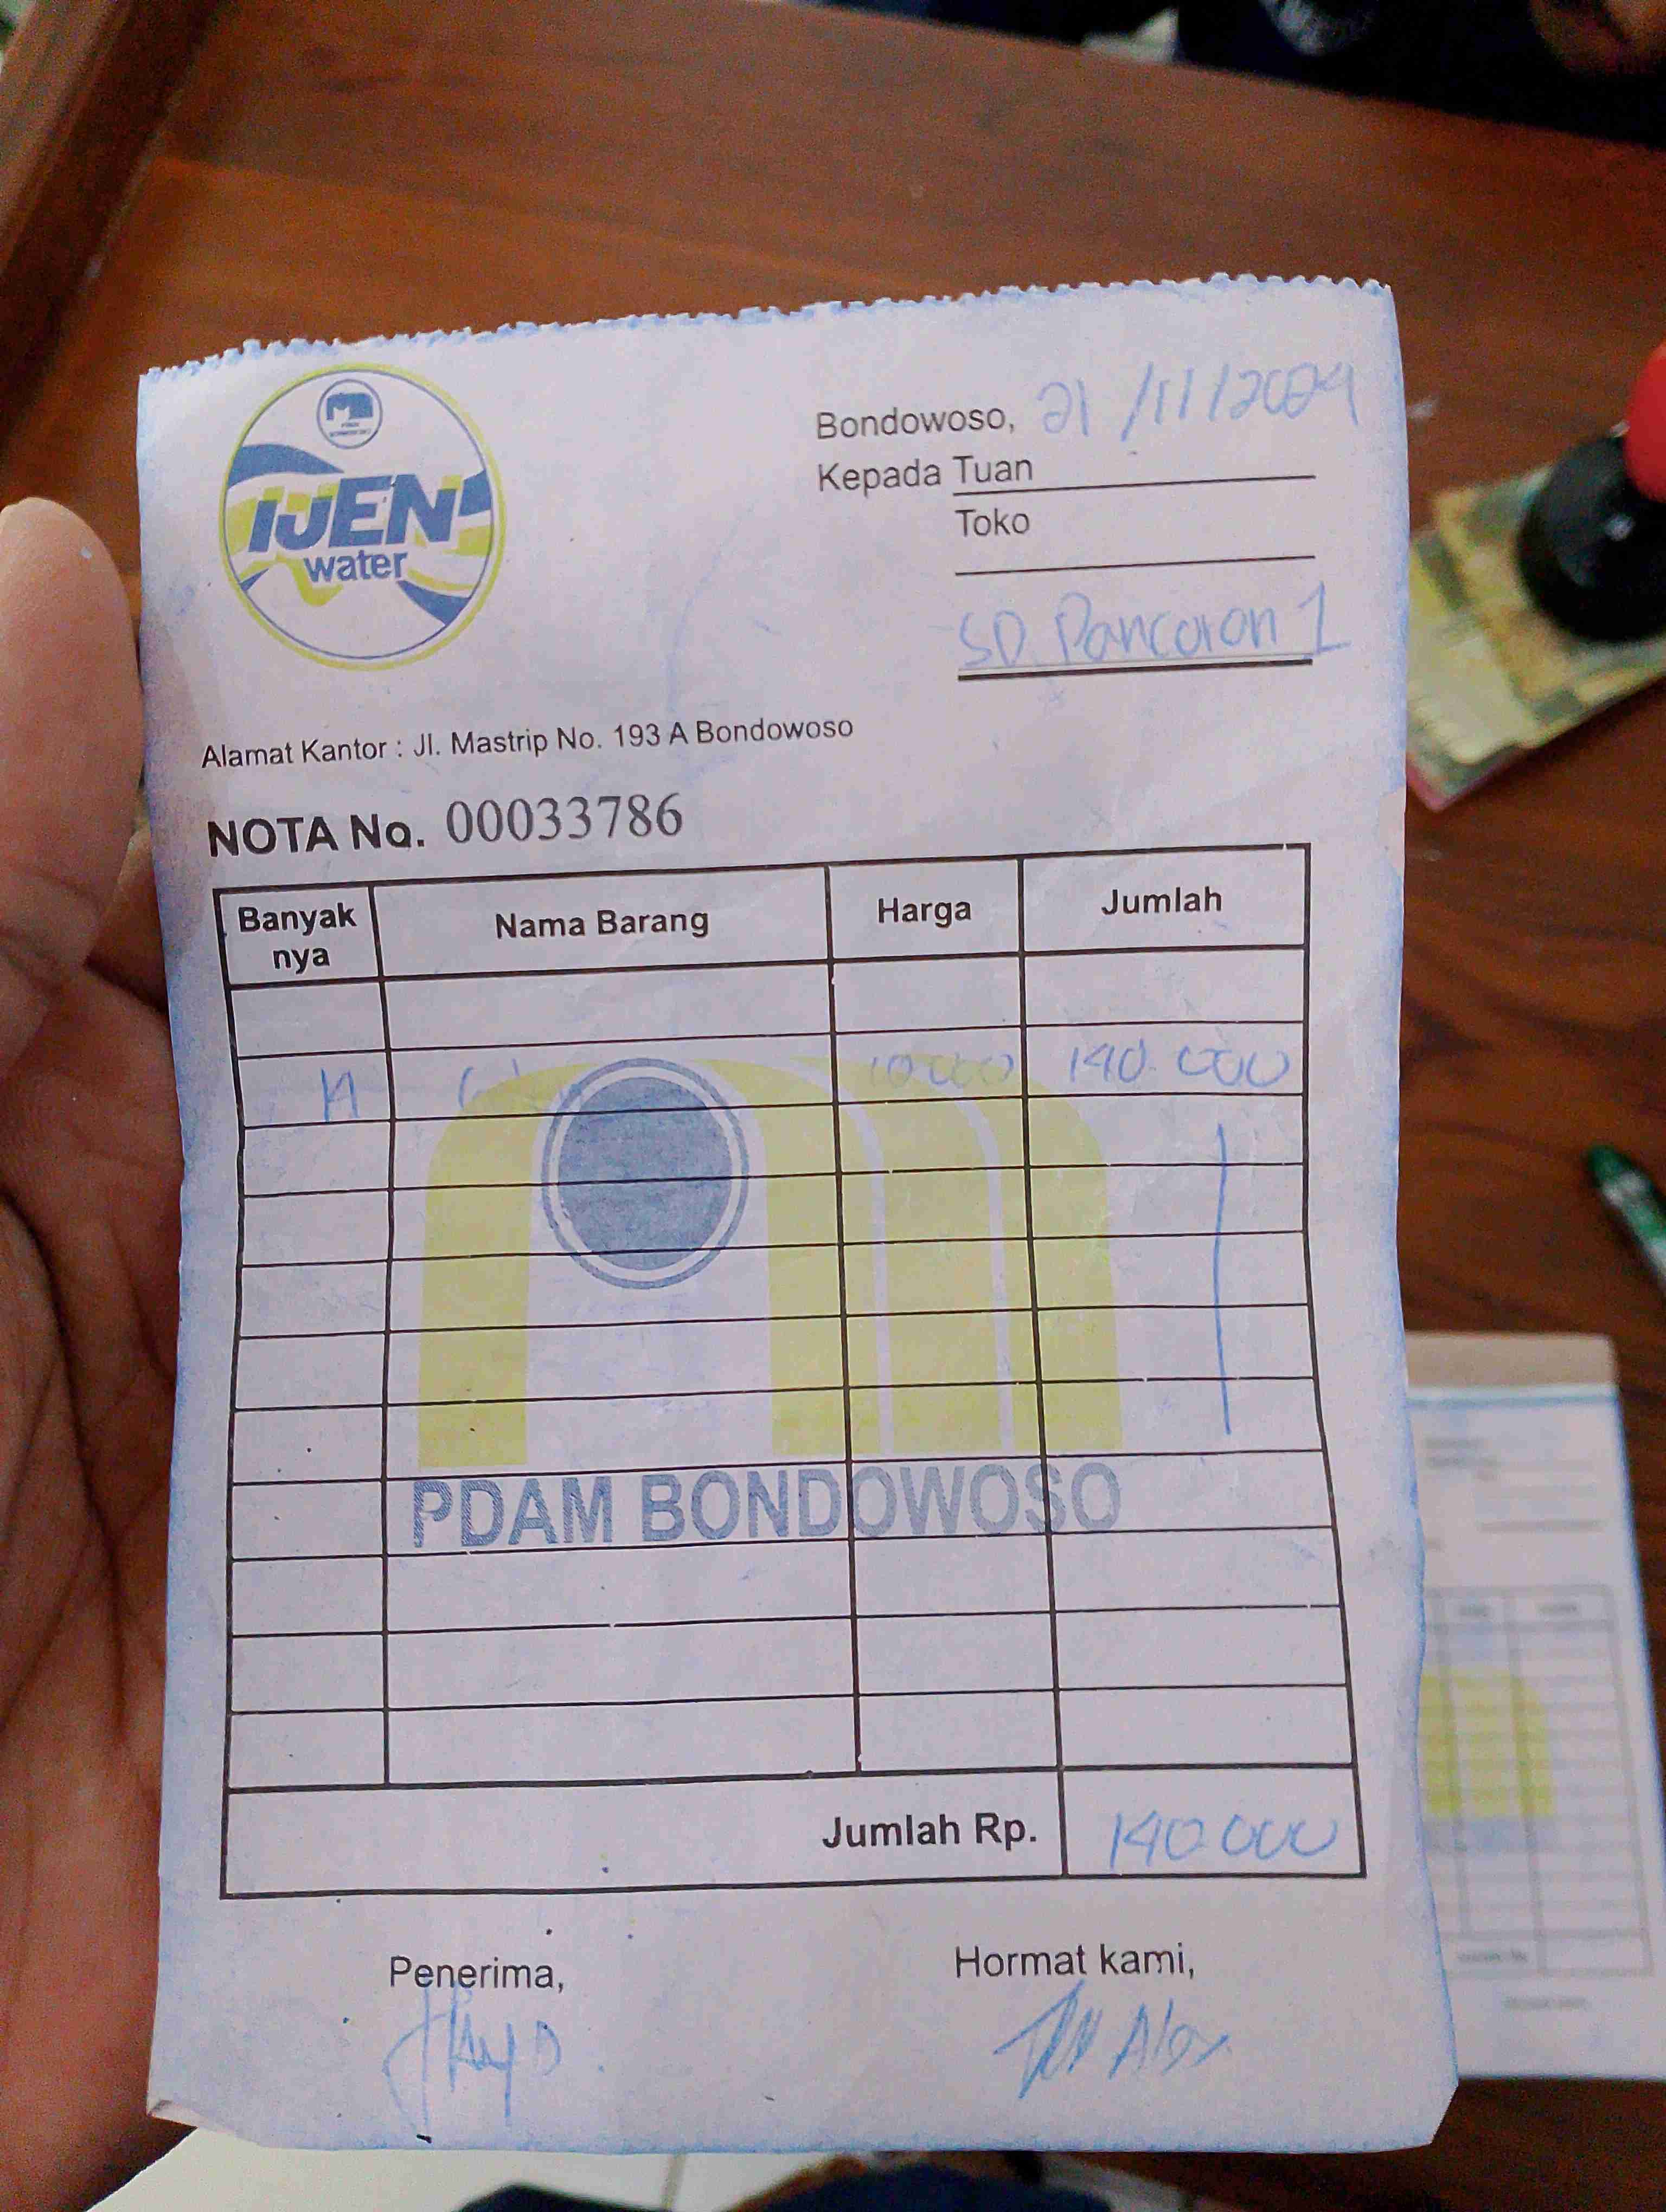 IJEN
water
Bondowoso, 21/11/2024
Kepada Tuan
Toko
SD. Pancoran 1
Alamat Kantor : Jl. Mastrip No. 193 A Bondowoso
NOTA No. 00033786
Banyak nya Nama Barang Harga Jumlah
14 10.000 140.000
PDAM BONDOWOSO
Jumlah Rp. 140.000
Penerima, Hormat kami,
Alex